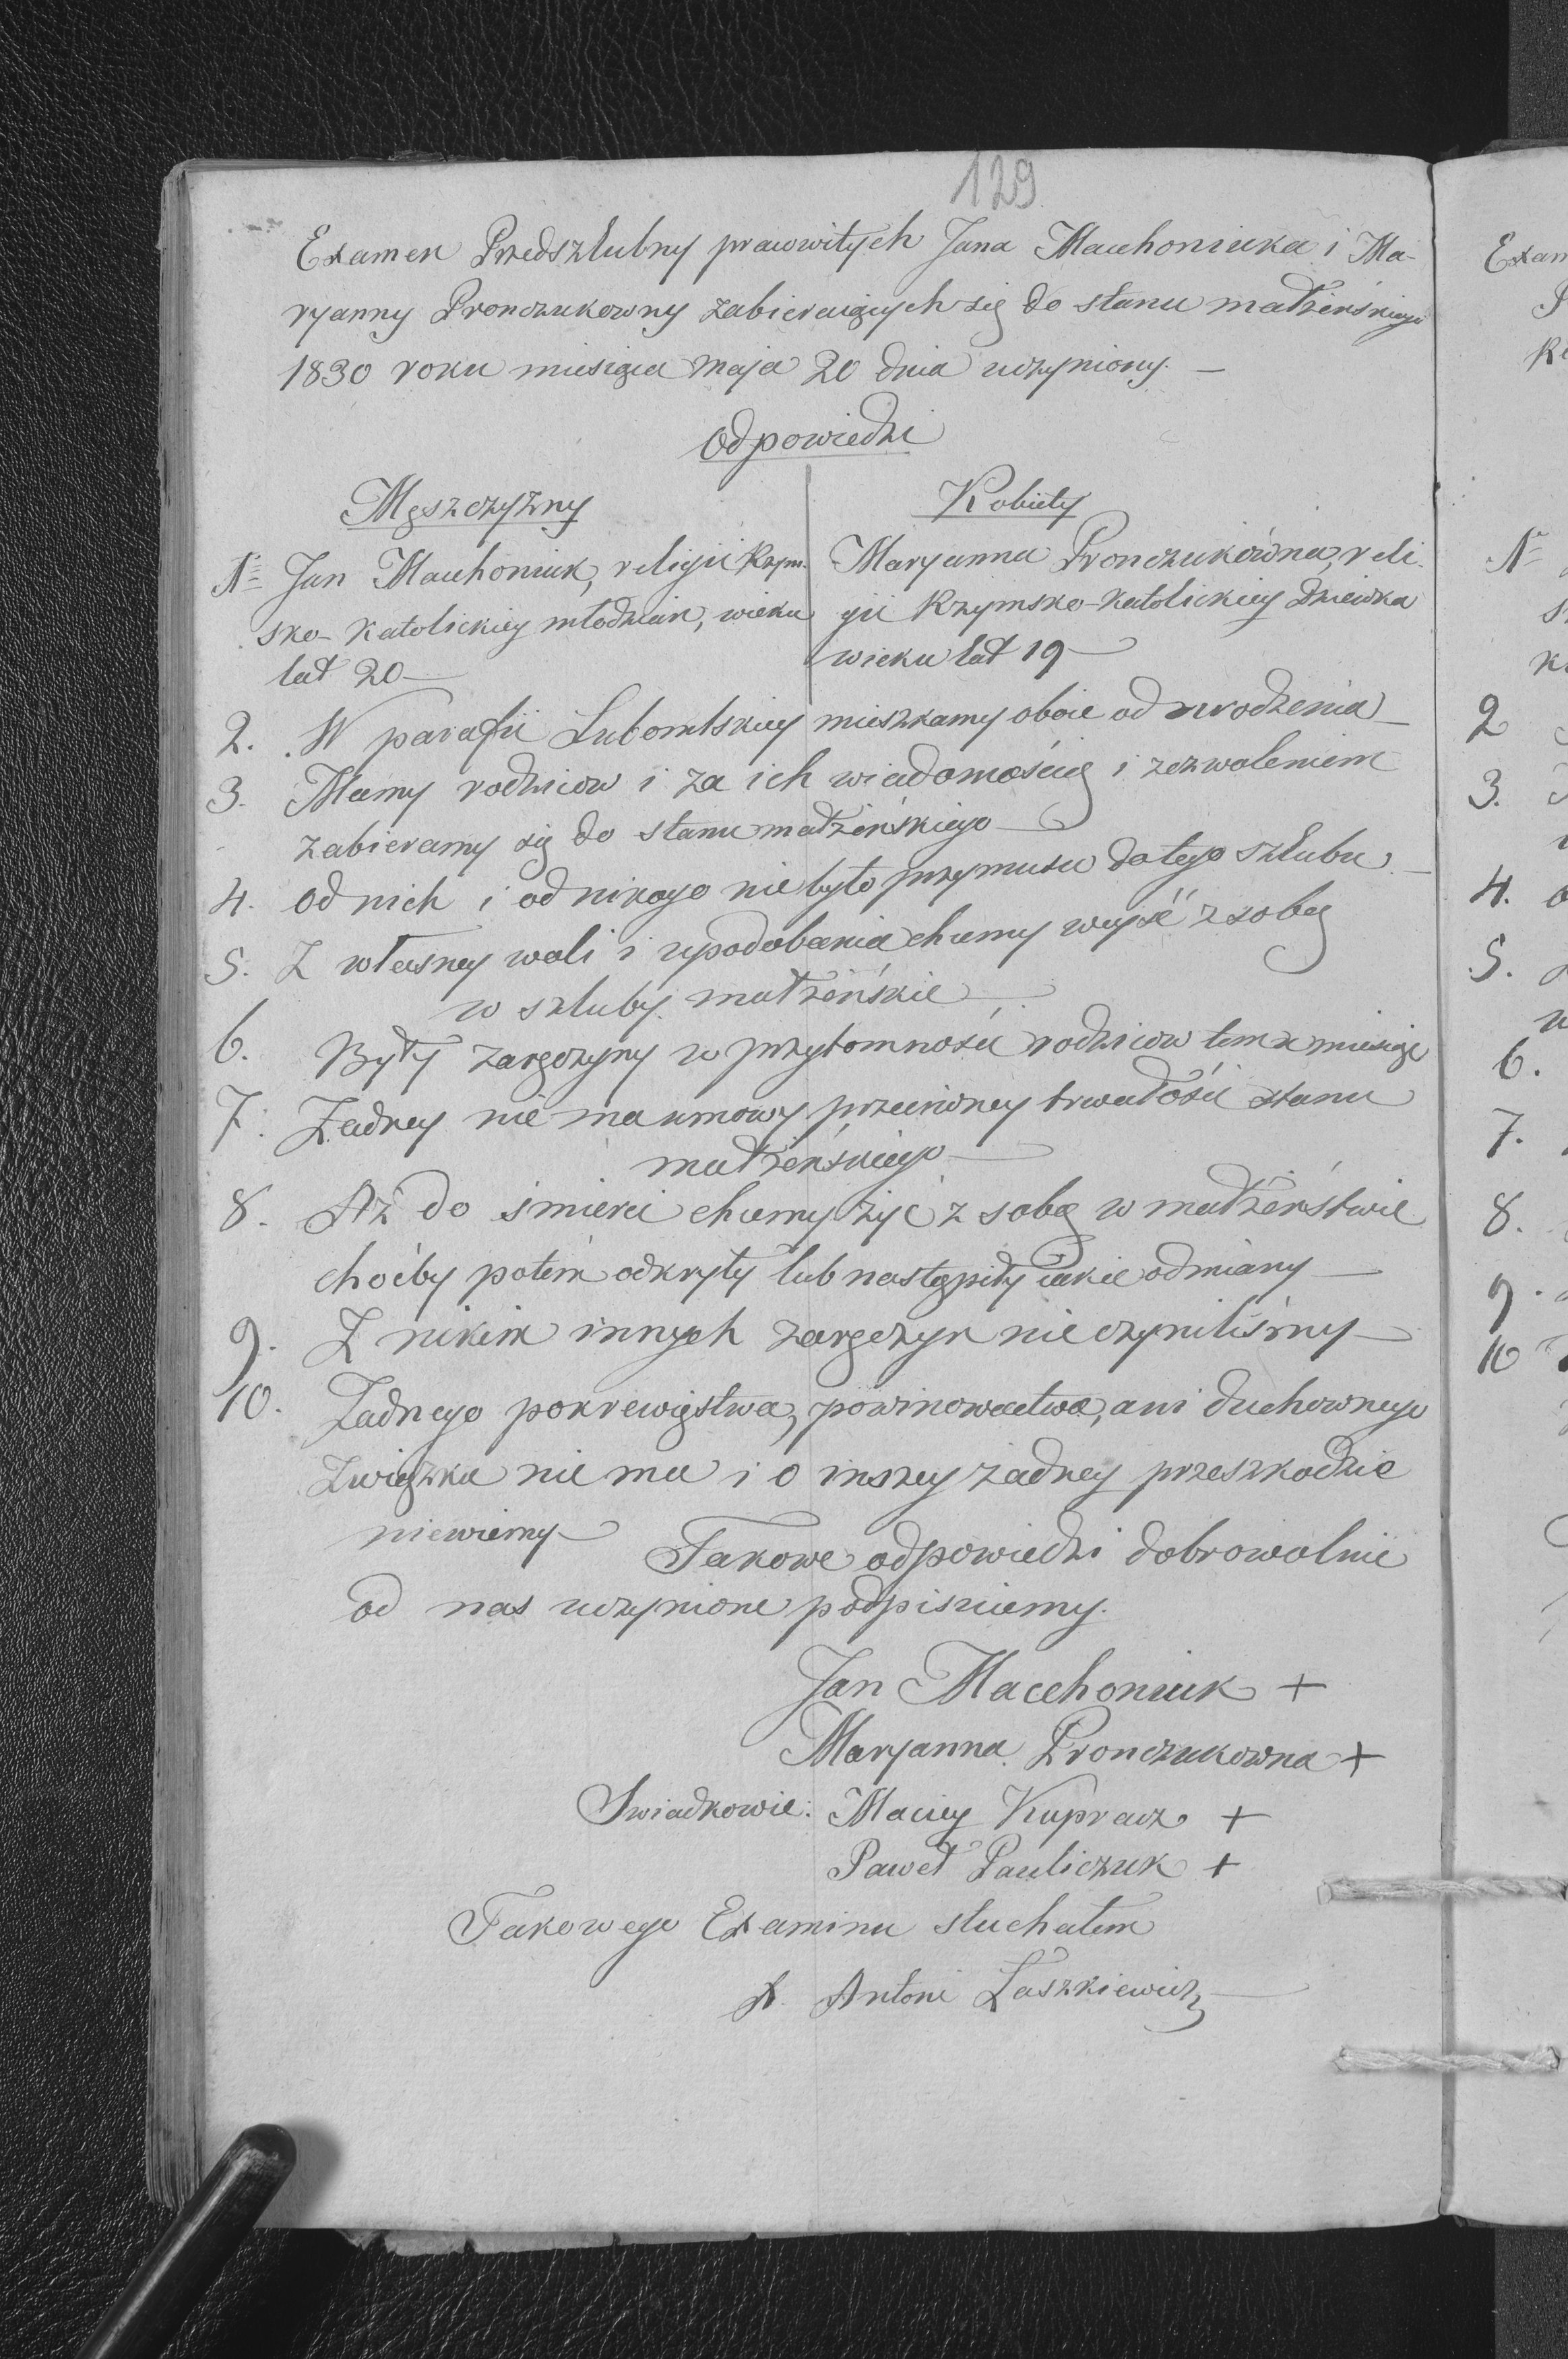 129
Examen Przedszlubny prawowitych Jana Macuhoniuka i Ma-
ryanny Pronczukowny zabieraiących się do stanu małżeńskiego
1830 roku miesiąca maja 20 dnia uczyniony. —
Odpowiedzi
Męszczyzny
Kobiety
Nr Jan Macuhoniuk, religii Rzym-
sko-Katolickiey młodzian, wieku
lat 20 —
Maryanna Pronczukówna, reli-
gii Rzymsko-Katolickiey dziewka
wieku lat 19 —
2. W parafii Lubomlskiey mieszkamy oboie od urodzenia —
3. Mamy rodziców i za ich wiadomością i zezwoleniem
zabieramy się do stanu małżeńskiego —
4. od nich i od nikogo nie było przymusu do tego szlubu. —
5. Z własney woli i upodobania chcemy weyść z sobą
w szluby małżeńskie —
6. Były zaręczyny w przytomności rodziców temu miesiąc
7. Żadney nie ma umowy przeciwney trwałości stanu
małżeńskiego —
8. Aż do śmierci chcemy żyć z sobą w małżeństwie
choćby potem odkryły lub nastąpiły iakie odmiany —
9. Z nikim innych zaręczyn nie czyniliśmy —
10. Żadnego pokrewięstwa, powinowactwa, ani duchownego
Związku nie ma i o inszey żadney przeszkodzie
niewiemy — Takowe odpowiedzi dobrowolnie
od nas uczynione podpisuiemy.
Jan Macehoniuk +
Maryanna Pronczukowna +
Swiadkowie: Maciey Kupracz +
Paweł Pauliczuk +
Takowego Examinu słuchałem
X. Antoni Laszkiewicz —
Exam
Nr
2
3.
4.
5.
6.
7.
8.
9.
10